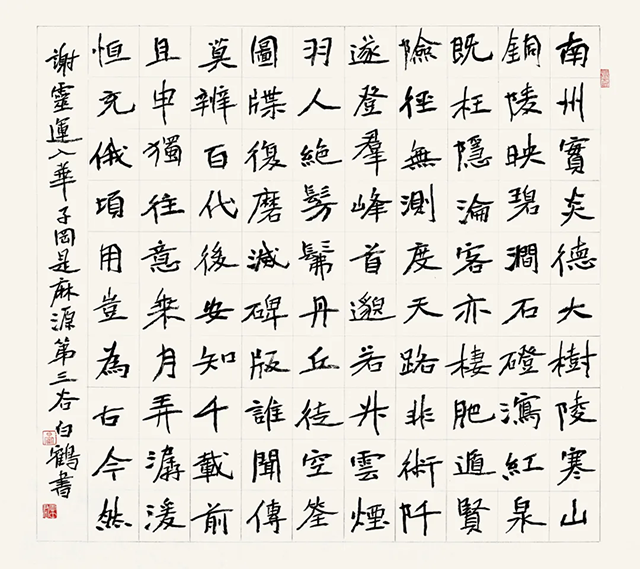 南州實炎德大樹陵寒山
銅陵映碧澗石磴瀉紅泉
既枉隱淪客亦棲肥遁賢
險徑無測度天路非術阡
遂登羣峰首邈若升雲煙
羽人絕髣髴丹丘徒空筌
圖牒復磨滅碑版誰聞傳
莫辨百代後安知千載前
且申獨往意乘月弄潺湲
恒充俄頃用豈為古今然
謝靈運入華子岡是麻源第三谷白鶴書